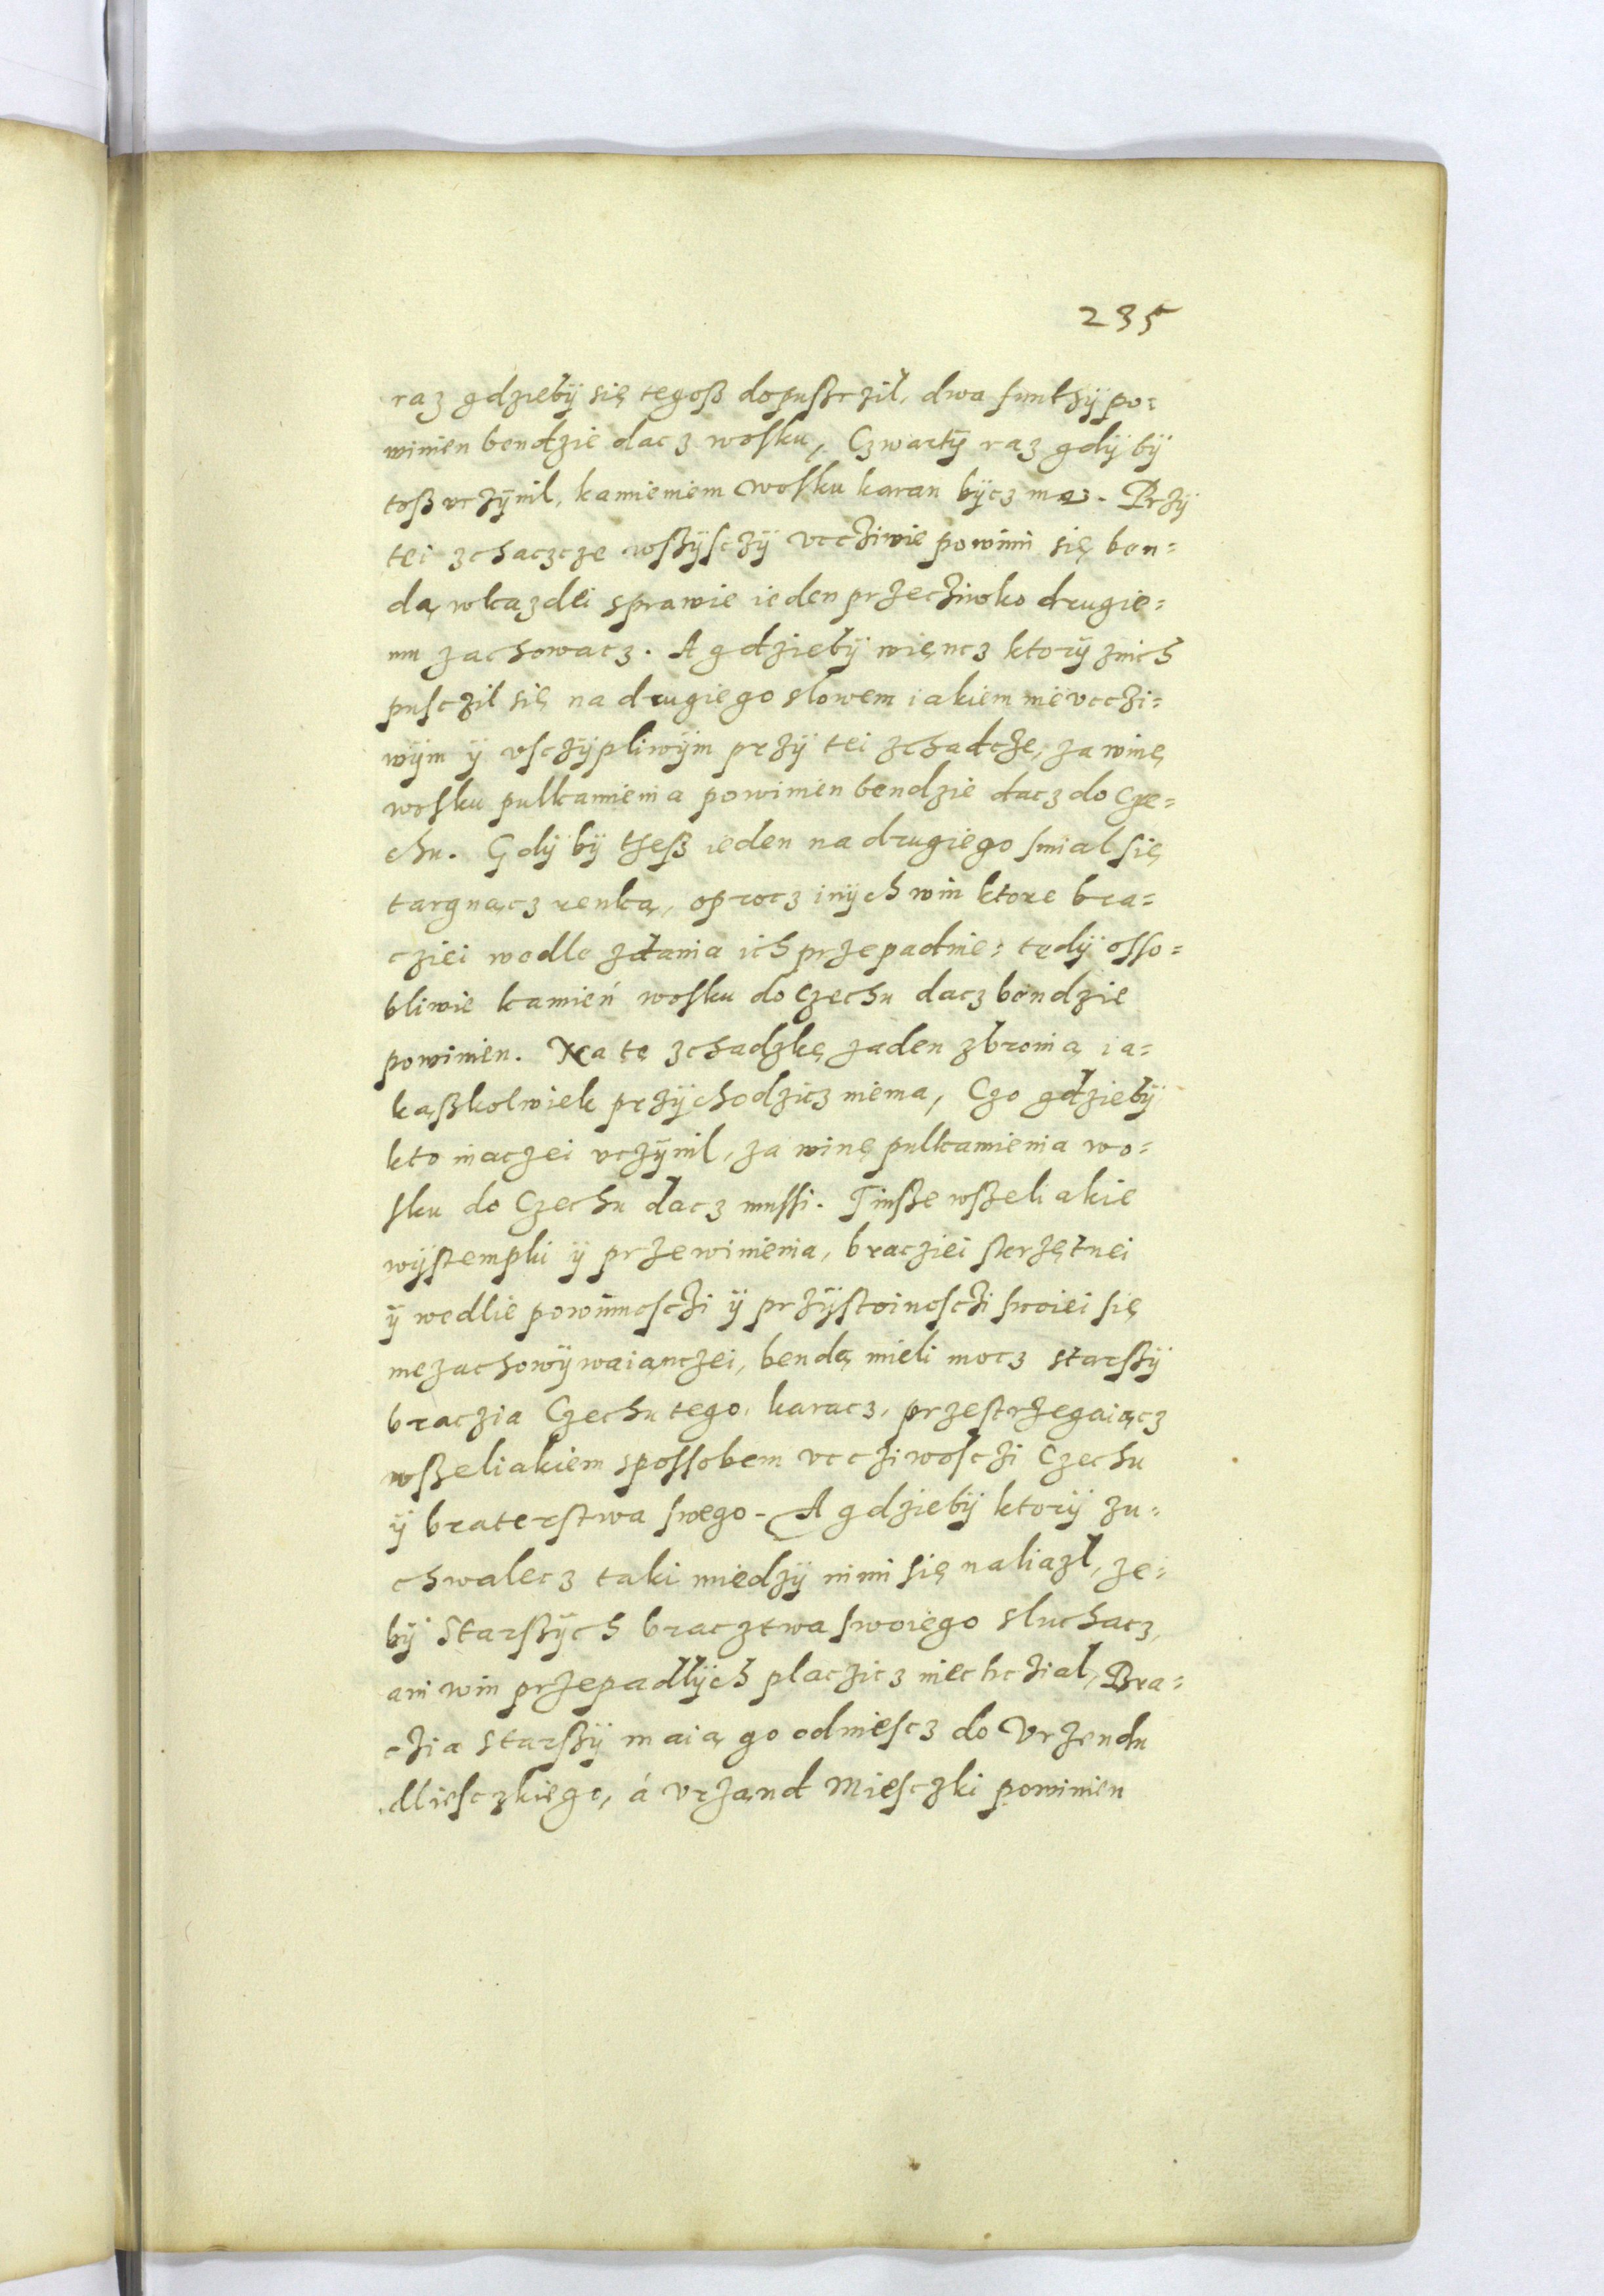 235
raz gdzieby się tegoß dopußczil, dwa funthÿ po=
winien bendzie dacz wosku, Czwartÿ raz gdÿ bÿ
toß vczÿnil, kamieniem wosku karan bÿcz ma. Przÿ
tei zchaczcze wszÿsczÿ vccziwie powinni się ben=
dą wkazdei sprawie ieden przecziwko drugie=
mu zachowacz. A gdziebÿ więncz ktorÿ znich
pusczil się na drugiego slowem iakiem nievcczi=
wÿm ÿ vsczÿpliwÿm przÿ tei zchadcze, za winę
wosku pulkamienia powinien bendzie dacz do Cze=
chu. Gdÿ bÿ theß ieden na drugiego smial się
targnącz renką, oprocz inÿch win ktore bra=
cziei wedle zdania ich przepadnie: tedÿ osso=
bliwie kamień wosku do Czechu dacz bendzie
powinien. Na tę zchadzkę zaden zbronią ia=
kąßkolwiek przÿchodzicz niema, Czo gdziebÿ
kto inaczei vczÿnil, za winę pulkamienia wo=
sku do Czechu dacz mussi. Jinße wßeliakie
wÿstempki ÿ przewinienia, bracziei skrzętnei
ÿ wedlie powinnosczi ÿ przÿstoinosczi swoiei się
niezachowÿwaianczei, bendą mieli mocz starßÿ
braczia Czechu tego, karacz, przestrzegaiącz
wßeliakiem spossobem vccziwosczi Czechu
ÿ braterstwa swego. A gdziebÿ ktorÿ zu=
chwalecz taki miedzÿ nimi się naliazl, ze=
bÿ Starßÿch bracztwa swoiego sluchacz,
ani win przepadlÿch placzicz niechczial, Bra=
czia Starßÿ maią go odniescz do Vrzendu
Miesczkiego, á Vrzand Miesczki powinien